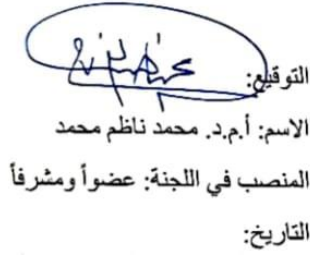 التوقيع:
الاسم: أ.م.د. محمد ناظم محمد
المنصب في اللجنة: عضواً ومشرفاً
التاريخ: